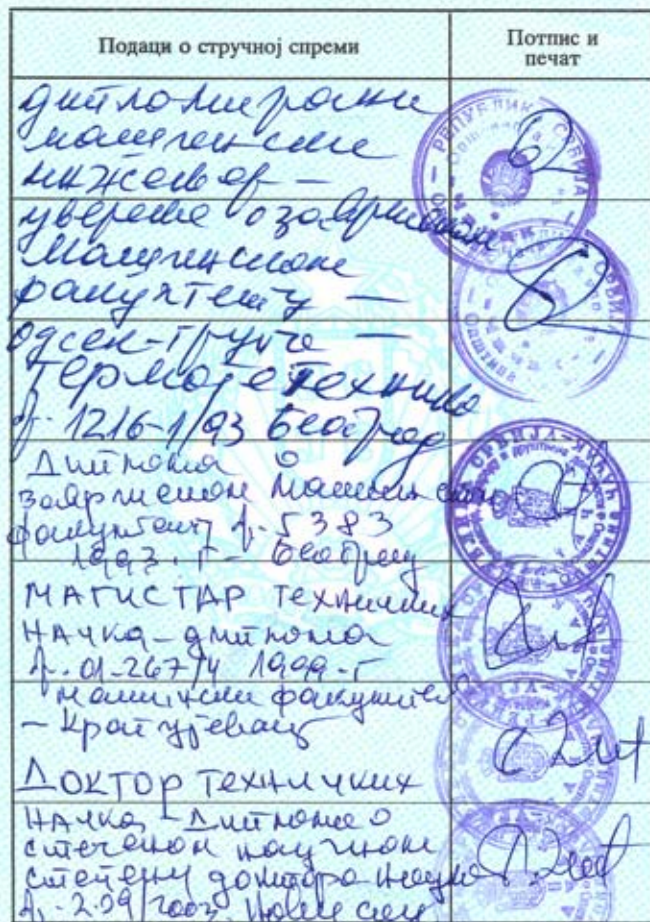 Подаци о стручној спреми
Потпис и
печат
дипломирани
машински
инжењер —
уверење о завршеном
Машинском
факултету —
одсек-група —
Термотехника
бр. 1216-1/93 Београд
Диплома о
завршеном Машинском
факултету бр. 5383
1993. г - Београд
МАГИСТАР Техничких
НАУКА - диплома
бр. 01-267/4 1999. г
Машински факултет
- Крагујевац
ДОКТОР Техничких
НАУКА - Диплома о
стеченом научном
степену доктора наука
бр. 2-09/2003. Нови Сад
РЕПУБЛИКА СРБИЈА